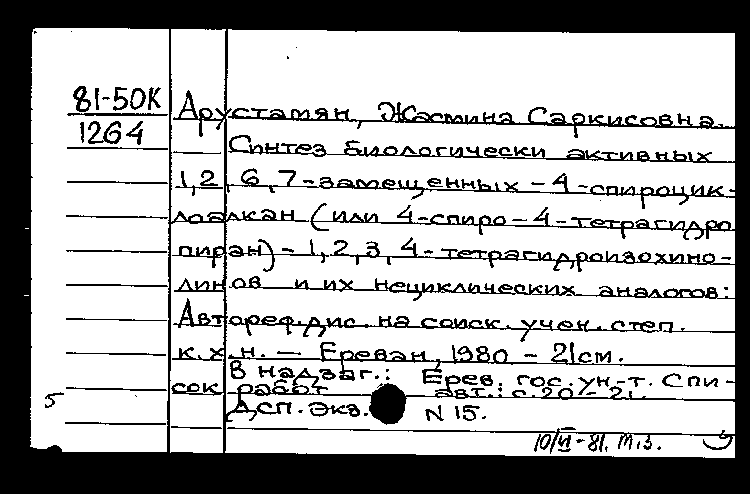 81-50К
1264
Арустамян, Жасмина Саркисовна.
Синтез биологически активных
1,2,6,7-замещенных-4-спироцик-
лоалкан (или 4-спиро-4-тетрагидро
пиран)-1,2,3,4-тетрагидроизохино-
линов и их нециклических аналогов:
Автореф. дис. на соиск. учен. степ.
к.х.н. — Ереван, 1980 - 21см.
В надзаг.: Ерев. гос. ун-т. Спи-
сок работ авт.: с.20-21.
5 Дсп. Экз. N 15.
10/VI-81. М.З.